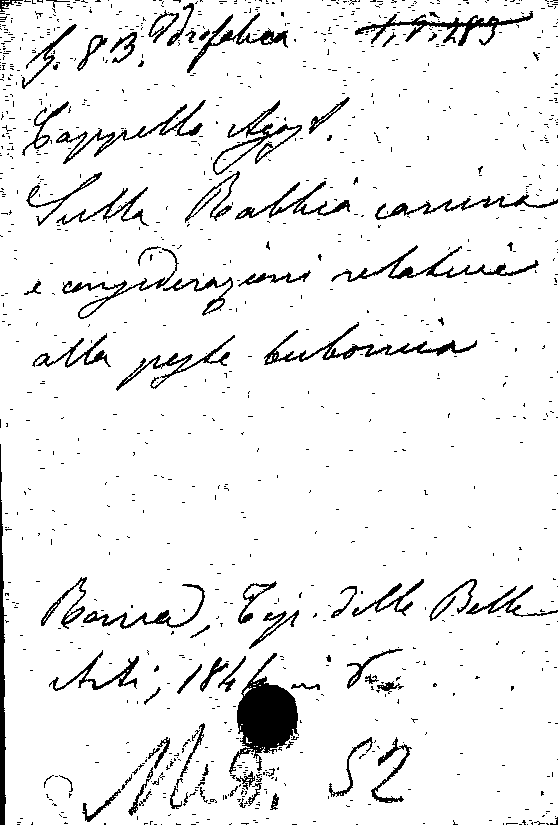 G. 8. B. Idrofobia 1, 5, 183
Cappello Agost.
Sulla Rabbia canina
e considerazioni relative
alla peste bubonica
Roma, Tip. delle Belle
Arti, 184 in 8
Med. 52